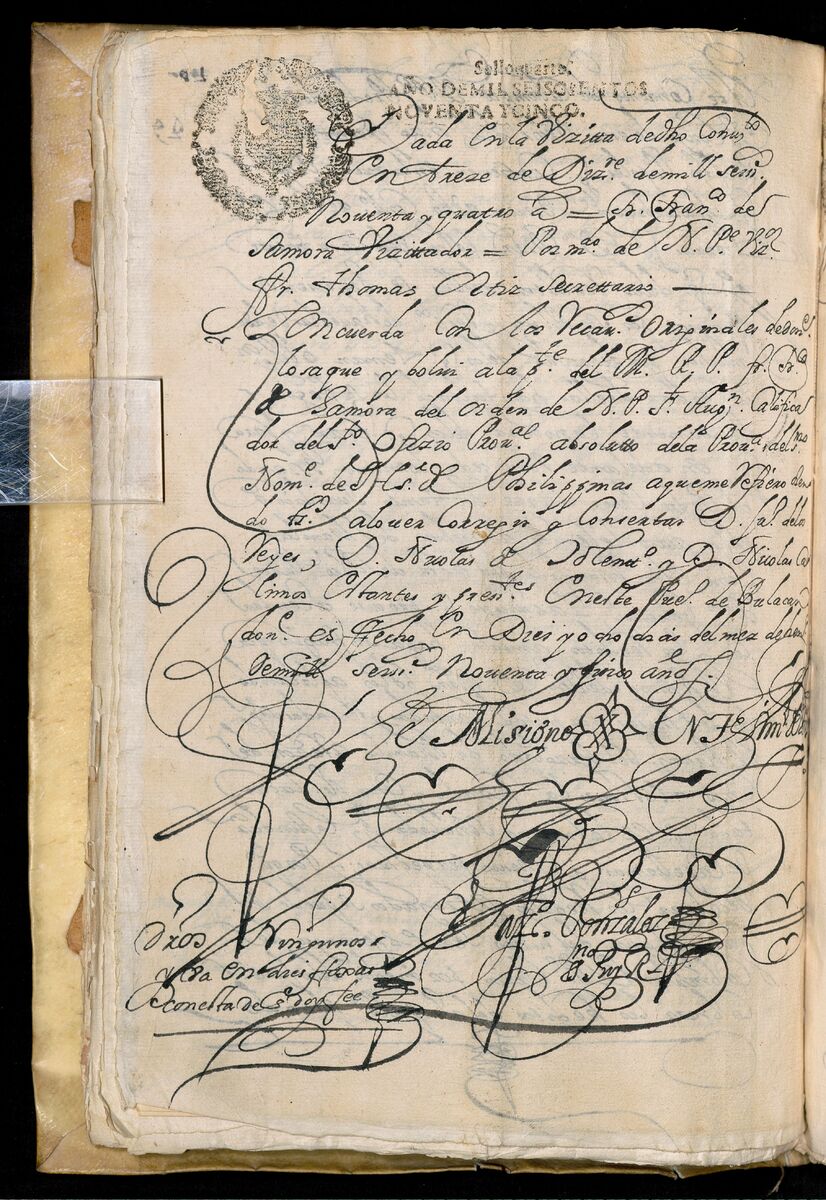 Selloquarto.
AÑO DEMIL SEISCIENTOS
NOVENTA YCINCO.
Dada en la Vizitta dedho Convto
En treze de Dizre. demill seis.
Noventa y quatro as = Fr. Franco de
Samora Vizittador = Por mdo. de N. Pe
Fr. Thomas Ortiz Secrettario
Concuerda Con los Originales dedon
lo saque y bolvi ala pte. del M. R. P. fr. Fco
de Samora del orden de N. P. S. Augn. Califica
dor del sto. Ofizio Proval absolutto dela Prova. del smo
Nome. de Philippinas aqueme Refiero
do tgo. alover Corregir y Consertar D. Jul. delos
Reyes, D. Nicolas de y D. Nicolas
linos Estantes y presentes Eneste Pueo. de Bulacan
donde es ffecho En Diez y ocho dias del mes de
demill seis. Noventa y sinco años.
En Testimo
Gonzalez
Dros Ningunos
y ba en diez foxas
conesta de q. doy fee